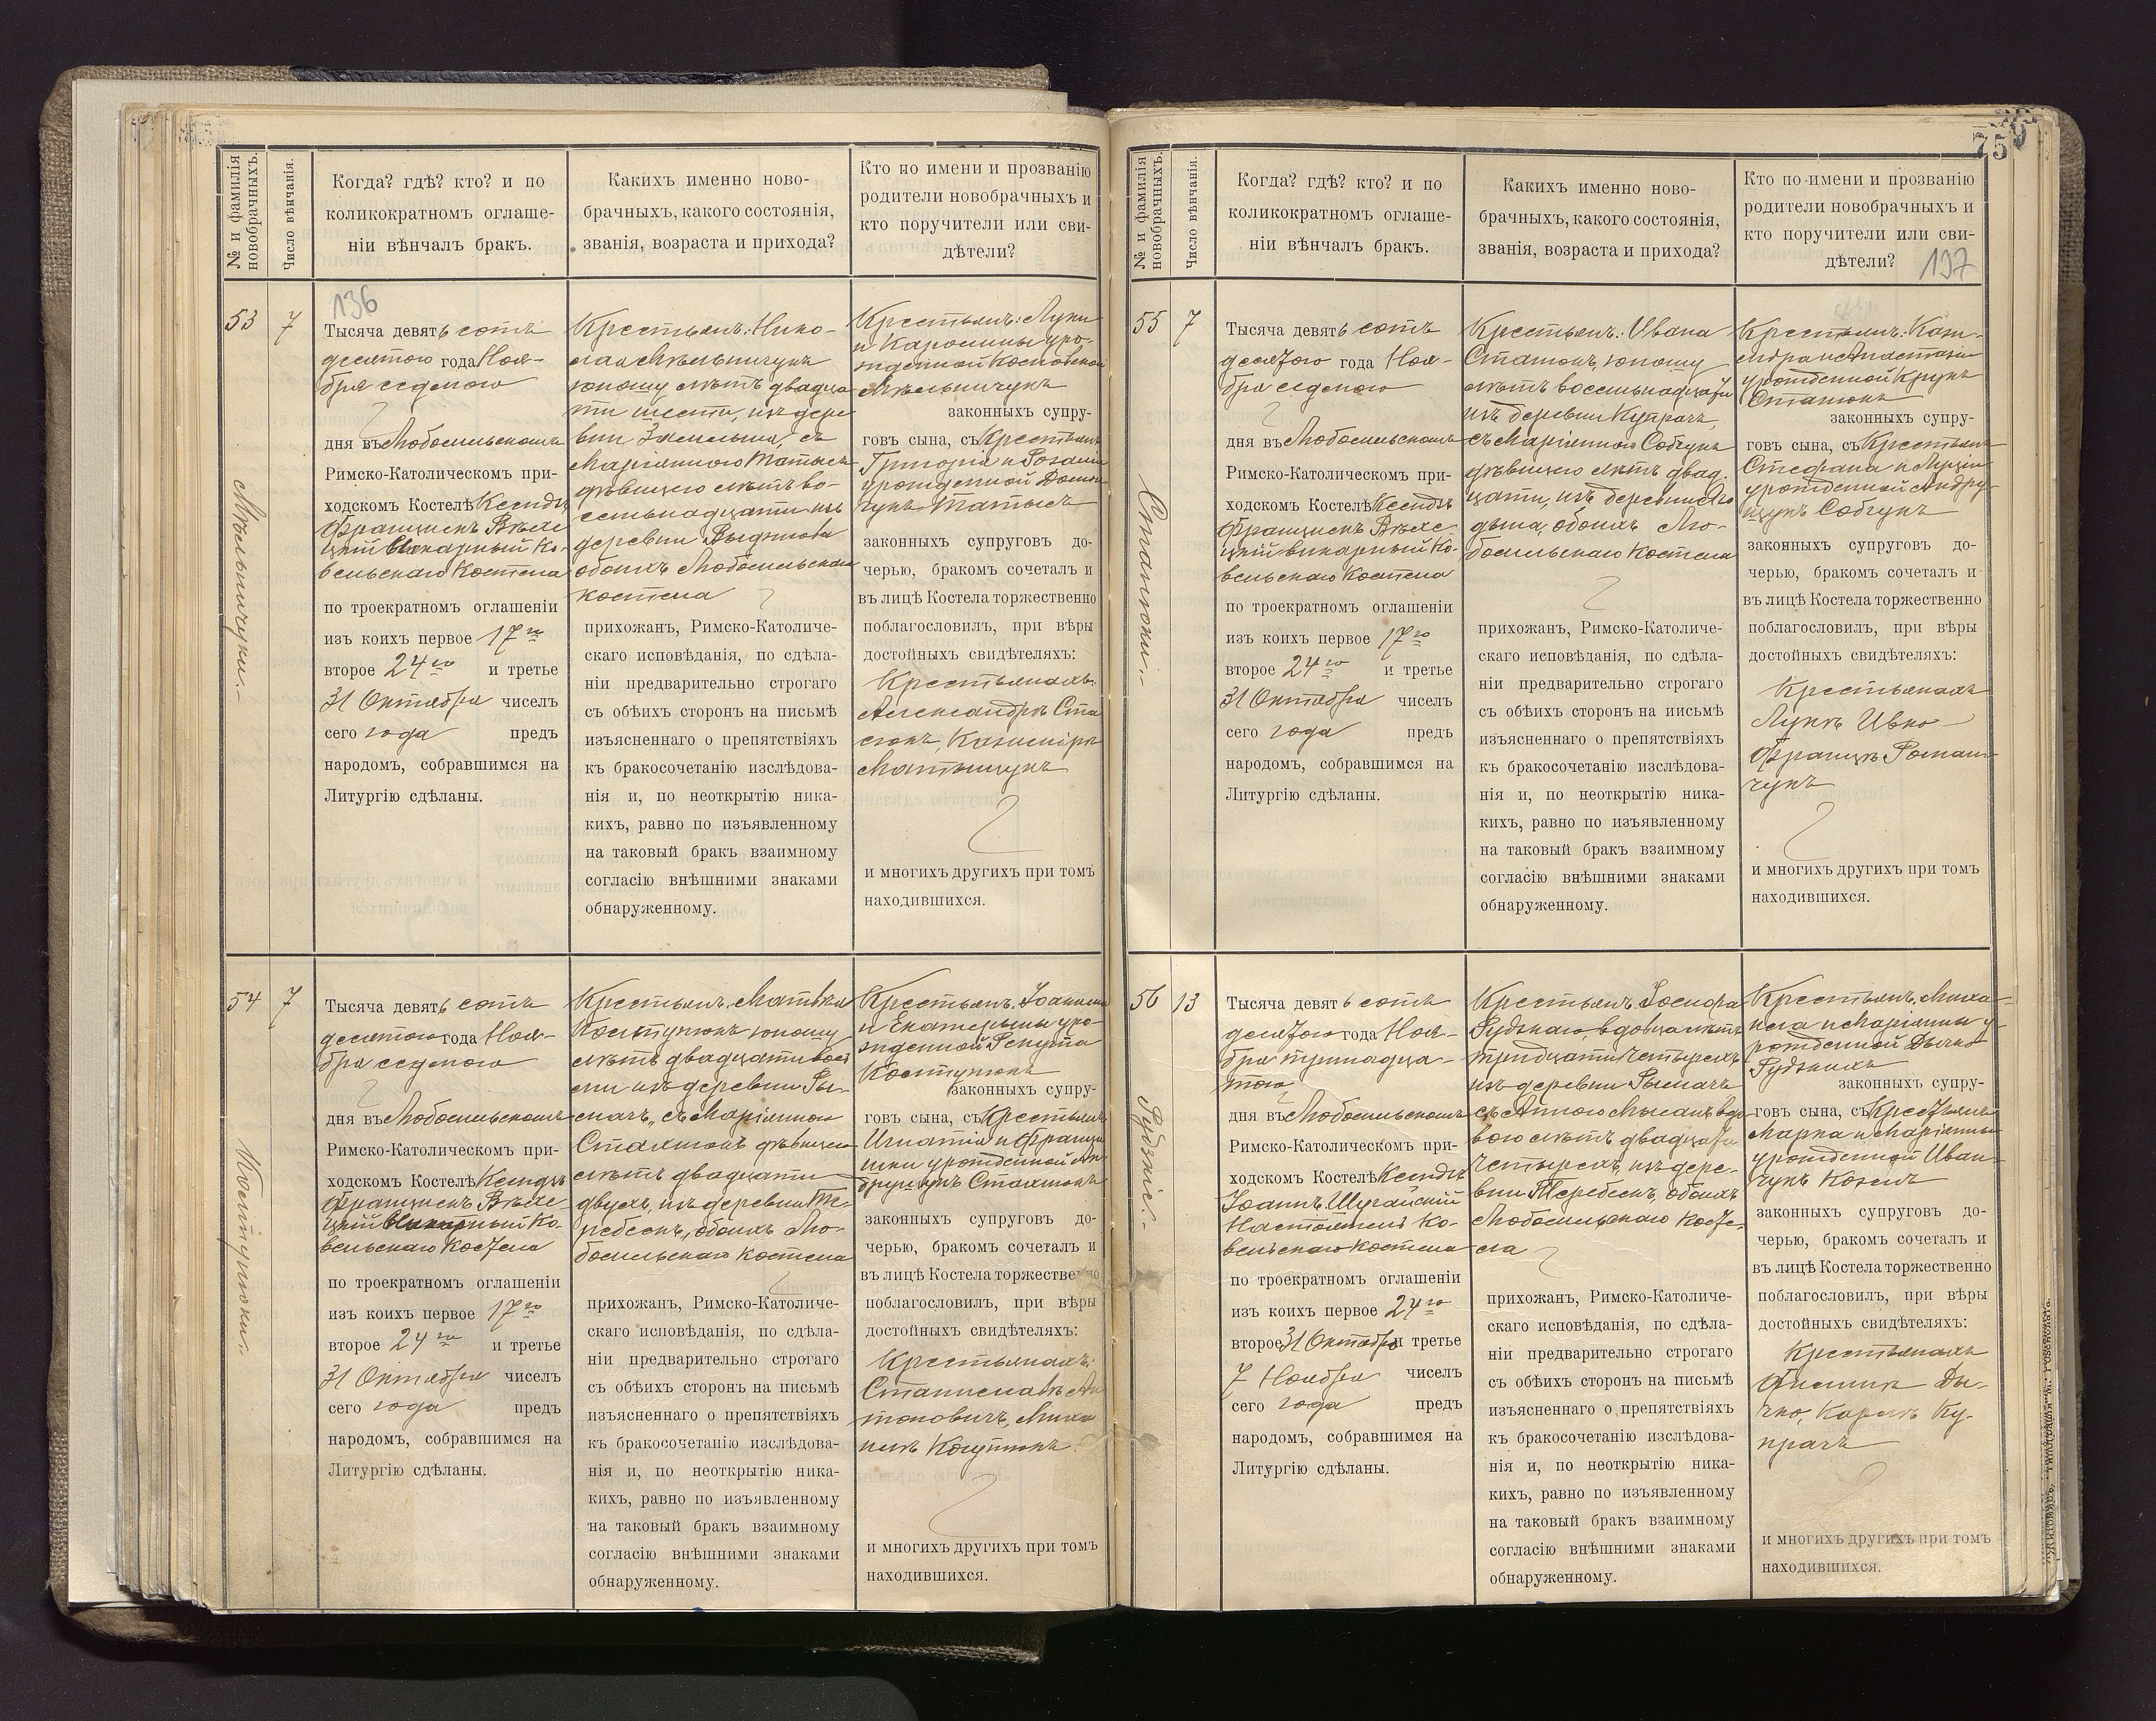 № и фамилія новобрачныхъ.
Число вѣнчанія.
Когда? гдѣ? кто? и по
коликократномъ оглаше-
ніи вѣнчалъ бракъ.
Какихъ именно ново-
брачныхъ, какого состоянія,
званія, возраста и прихода?
Кто по имени и прозванію
родители новобрачныхъ и
кто поручители или сви-
дѣтели?
53
7
Мѣльничуки.-
136
Тысяча девятьсотъ
десятого года Ноя-
бря седмого
дня въ Любомльскомъ
Римско-Католическомъ при-
ходскомъ Костелѣ Ксендзъ
Францискъ
викарный Ко-
вельскаго Костела
по троекратномъ оглашеніи
изъ коихъ первое 17го
второе 24го и третье
31 Октября чиселъ
сего года предъ
народомъ, собравшимся на
Литургію сдѣланы.
Крестьянъ: Нико-
лая Мѣльничукъ
юношу лѣтъ двадца
ти шести, изъ дере
вни Замлынья, съ
Маріянною Матысъ
дѣвицею лѣтъ во-
семьнадцати изъ
деревни
обоихъ Любомльскаго
костела
прихожанъ, Римско-Католиче-
скаго исповѣданія, по сдѣла-
ніи предварительно строгаго
съ обѣихъ сторонъ на письмѣ
изъясненнаго о препятствіяхъ
къ бракосочетанію изслѣдова-
нія и, по неоткрытію ника-
кихъ, равно по изъявленному
на таковый бракъ взаимному
согласію внѣшними знаками
обнаруженному.
Крестьянъ: Луки
и Каролины уро-
жденной
Мѣльничукъ
законныхъ супру-
говъ сына, съ Крестьянъ
Григорія и Розаліи
урожденной
чукъ Матысъ
законныхъ супруговъ до-
черью, бракомъ сочеталъ и
въ лицѣ Костела торжественно
поблагословилъ, при вѣры
достойныхъ свидѣтеляхъ:
Крестьянахъ:
Александрѣ Ста
сюкъ, Казимірѣ
Матыщукъ
и многихъ другихъ при томъ
находившихся.
54
7
Костунюки.-
Тысяча девятьсотъ
десятого года Ноя-
бря седмого
дня въ Любомльскомъ
Римско-Католическомъ при-
ходскомъ Костелѣ Ксендзъ
Францискъ
викарный Ко-
вельскаго Костела
по троекратномъ оглашеніи
изъ коихъ первое 17го
второе 24го и третье
31 Октября чиселъ
сего года предъ
народомъ, собравшимся на
Литургію сдѣланы.
Крестьянъ: Матвѣя
Костунюкъ юношу
лѣтъ двадцати вось
ми изъ деревни Ры-
мачъ, съ Маріянною
Стахнюкъ дѣвицею
лѣтъ двадцати
двухъ, изъ деревни Те-
ребеекъ, обоихъ Лю-
бомльскаго костела
прихожанъ, Римско-Католиче-
скаго исповѣданія, по сдѣла-
ніи предварительно строгаго
съ обѣихъ сторонъ на письмѣ
изъясненнаго о препятствіяхъ
къ бракосочетанію изслѣдова-
нія и, по неоткрытію ника-
кихъ, равно по изъявленному
на таковый бракъ взаимному
согласію внѣшними знаками
обнаруженному.
Крестьянъ:
и Екатерины уро-
жденной
Костунюкъ
законныхъ супру-
говъ сына, съ Крестьянъ
Игнатія и Францы
шки урожденной Ан-
друщукъ Стахнюкъ
законныхъ супруговъ до-
черью, бракомъ сочеталъ и
въ лицѣ Костела торжественно
поблагословилъ, при вѣры
достойныхъ свидѣтеляхъ:
Крестьянахъ:
Станиславѣ Ан
тоновичъ, Миха
илѣ
и многихъ другихъ при томъ
находившихся.
75
№ и фамилія новобрачныхъ.
Число вѣнчанія.
Когда? гдѣ? кто? и по
коликократномъ оглаше-
ніи вѣнчалъ бракъ.
Какихъ именно ново-
брачныхъ, какого состоянія,
званія, возраста и прихода?
Кто по имени и прозванію
родители новобрачныхъ и
кто поручители или сви-
дѣтели?
137
55
7
Тысяча девятьсотъ
десятого года Ноя-
бря седмого
дня въ Любомльскомъ
Римско-Католическомъ при-
ходскомъ Костелѣ Ксендзъ
Францискъ
викарный Ко-
вельскаго Костела
по троекратномъ оглашеніи
изъ коихъ первое 17го
второе 24го и третье
31 Октября чиселъ
сего года предъ
народомъ, собравшимся на
Литургію сдѣланы.
Крестьянъ: Ивана
юношу
лѣтъ восемьнадцати
изъ деревни Купрачъ,
съ Маріянною Собчукъ
дѣвицею лѣтъ двад
цати, изъ деревни
обоихъ Лю-
бомльскаго Костела
прихожанъ, Римско-Католиче-
скаго исповѣданія, по сдѣла-
ніи предварительно строгаго
съ обѣихъ сторонъ на письмѣ
изъясненнаго о препятствіяхъ
къ бракосочетанію изслѣдова-
нія и, по неоткрытію ника-
кихъ, равно по изъявленному
на таковый бракъ взаимному
согласію внѣшними знаками
обнаруженному.
Крестьянъ: Кази-
міра и Анастазіи
урожденной Крукъ
законныхъ супру-
говъ сына, съ Крестьянъ
Стефана и Луціи
урожденной Андру-
щукъ Собчукъ
законныхъ супруговъ до-
черью, бракомъ сочеталъ и
въ лицѣ Костела торжественно
поблагословилъ, при вѣры
достойныхъ свидѣтеляхъ:
Крестьянахъ
Лукѣ
Францѣ Роман-
чукъ
и многихъ другихъ при томъ
находившихся.
56
13
Рудзкіе.-
Тысяча девятьсотъ
десятого года Ноя-
бря тринадца-
того
дня въ Любомльскомъ
Римско-Католическомъ при-
ходскомъ Костелѣ Ксендзъ
Іоаннъ
Настоятель Ко-
вельскаго костела
по троекратномъ оглашеніи
изъ коихъ первое 24го
второе 31 Октября и третье
7 Ноября чиселъ
сего года предъ
народомъ, собравшимся на
Литургію сдѣланы.
Крестьянъ: Іосифа
Рудзкаго, вдовца лѣтъ
тридцати четырехъ
изъ деревни Рымачъ
съ Анною вдо-
вою лѣтъ двадцати
четырехъ, изъ дере-
вни Теребеек, обоихъ
Любомльскаго косте-
ла
прихожанъ, Римско-Католиче-
скаго исповѣданія, по сдѣла-
ніи предварительно строгаго
съ обѣихъ сторонъ на письмѣ
изъясненнаго о препятствіяхъ
къ бракосочетанію изслѣдова-
нія и, по неоткрытію ника-
кихъ, равно по изъявленному
на таковый бракъ взаимному
согласію внѣшними знаками
обнаруженному.
Крестьянъ: Миха-
ила и Маріянны у-
рожденной Дычко
Рудзкихъ
законныхъ супру-
говъ сына, съ Крестьянъ
Марка и Маріянны
урожденной Иван-
чукъ Козелъ
законныхъ супруговъ до-
черью, бракомъ сочеталъ и
въ лицѣ Костела торжественно
поблагословилъ, при вѣры
достойныхъ свидѣтеляхъ:
Крестьянахъ
Ды-
чко, Каролѣ Ку-
прачъ
и многихъ другихъ при томъ
находившихся.